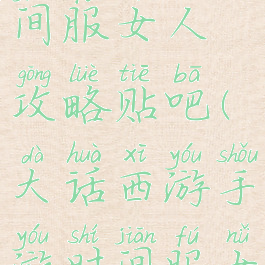 间服女人
gōng lüè tiē bā
攻略贴吧(
dà huà xī yóu shǒu
大话西游手
yóu shí jiān fú nǚ
游时间服女